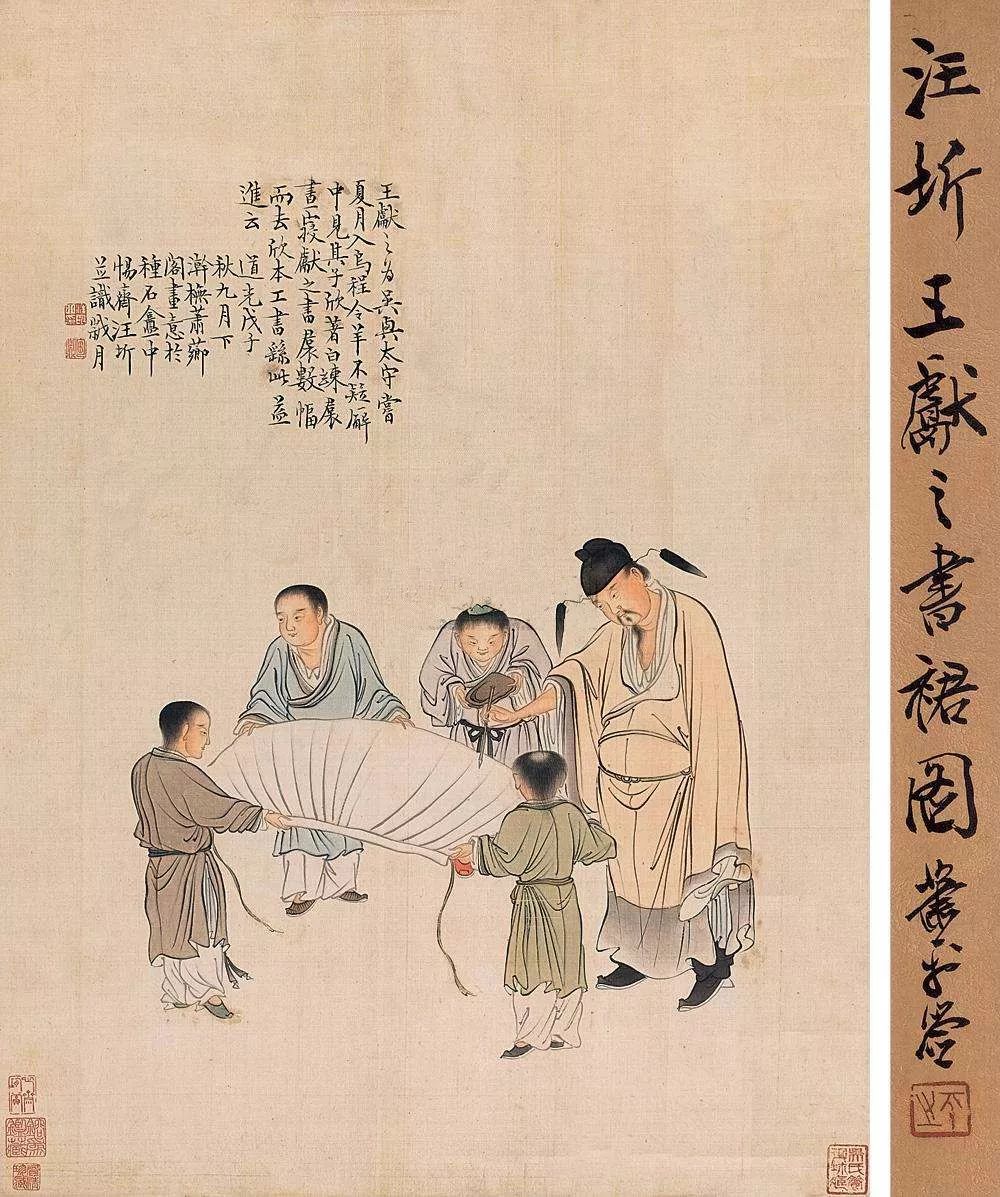 汪圻 王獻之書裙圖
王獻之為吳興太守嘗
夏月入烏程令羊不疑廨
中見其子欣著白練裠
晝寢獻之書裠數幅
而去欣本工書繇此益
進云 道光戊子
秋九月下
澣橅蕭薌
閣畫意於
種石盦中
惕齋汪圻
並識